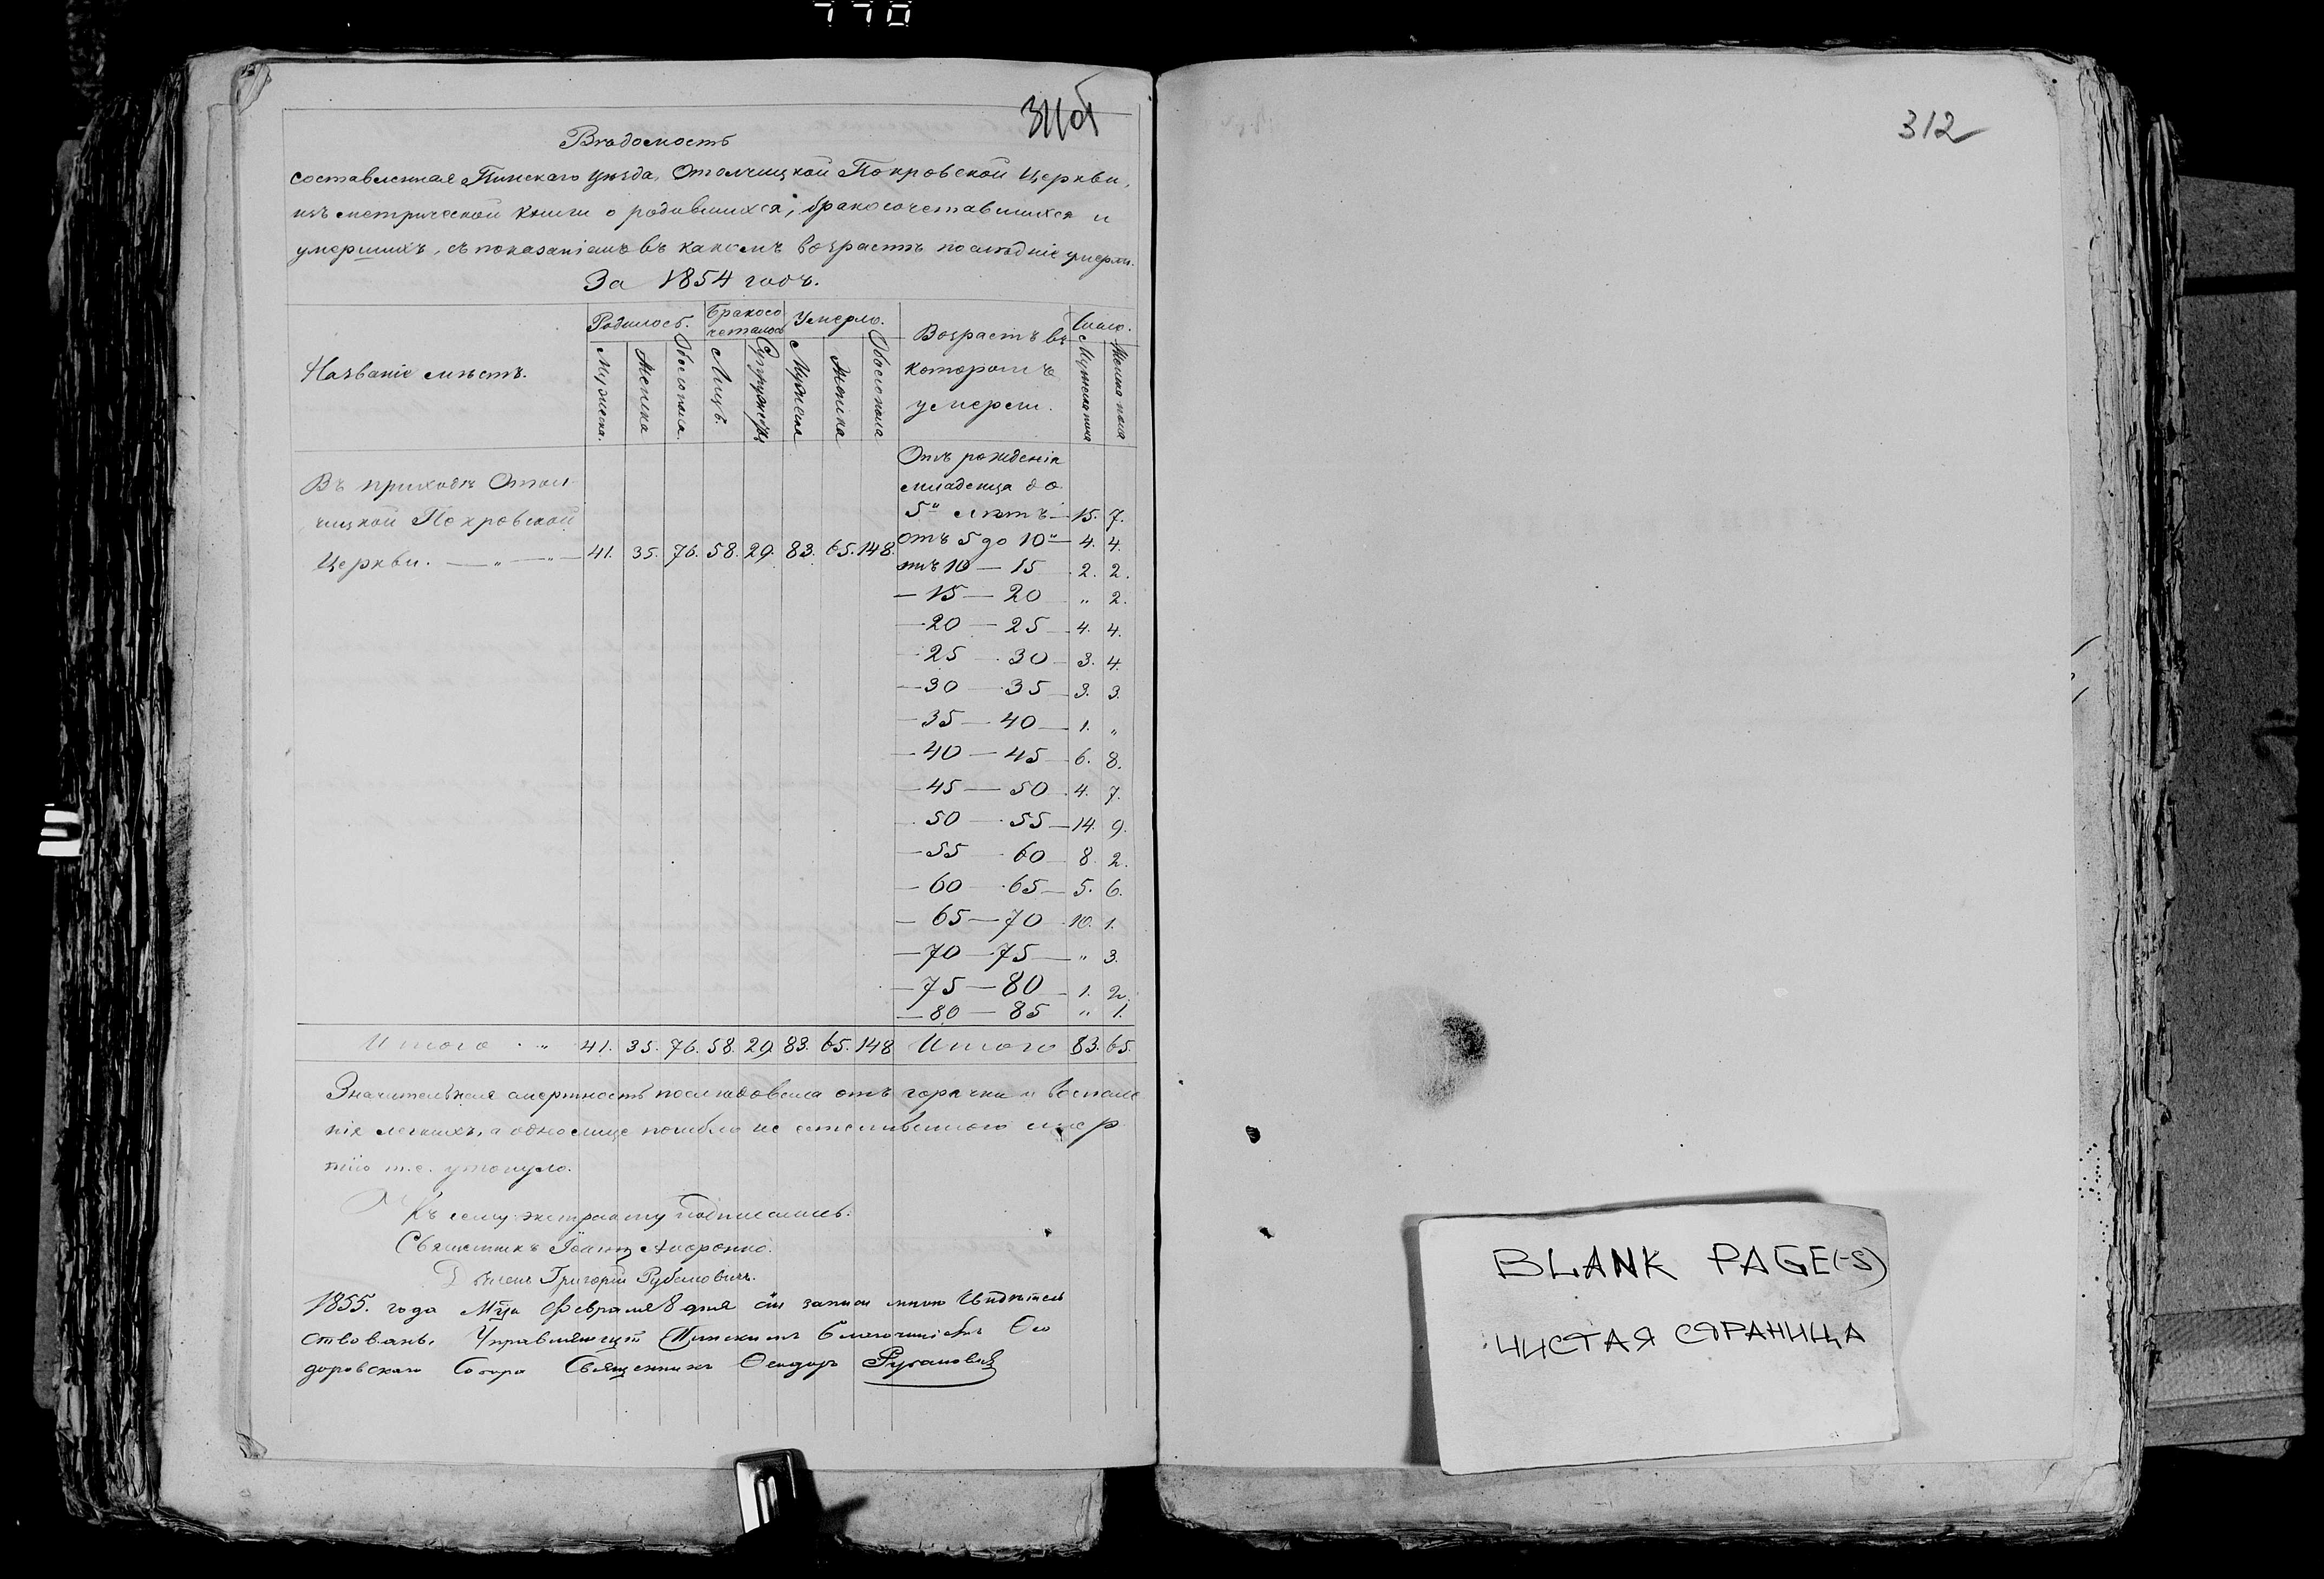 770
311об
Вѣдомость
составленная Пинскаго уѣзда, Отолчицкой Покровской Церкви,
изъ метрической книги о родившихся, бракосочетавшихся и
умершихъ, съ показаніемъ въ какомъ возрастѣ послѣдніе умерли.
За 1854 годъ.
Названіе мѣстъ.
Родилось. Бракосо четалось Умерло. Возрастъ въ которомъ умерли. Число.
Мужеска. Женска Обоего пола. Лицъ. Супружествъ Мужеска Женска Обоего пола Мужеска пола Женска пола
Отъ рожденія
младенца до
Въ приходѣ Отол
чицкой Покровской 5" лѣтъ — 15. 7.
отъ 5 до 10" — 4. 4.
Церкви. — " — " — 41. 35. 76. 58. 29. 83. 65. 148.
отъ 10 — 15 2. 2.
— 15 — 20 " 2.
— 20 — 25 — 4. 4.
25 — 30 — 3. 4.
— 30 — 35 — 3. 3.
— 35 — 40 — 1. "
— 40 — 45 — 6. 8.
— 45 — 50 4. 7.
50 — 55 — 14. 9.
— 55 60 — 8. 2.
— 60 — 65 — 5. 6.
— 65 — 70 10. 1.
— 70 — 75 — " 3.
— 75 — 80 — 1. 2.
— 80 — 85 " 1.
Итого " 41. 35. 76. 58. 29. 83. 65. 148 Итого 83. 65.
Значительная смертность послѣдовала отъ горячки и воспале
нія легкихъ, а одно лице погибло не естественною смер
тію т.е. утонуло.
Къ сему экстракту подписались:
Священникъ Іоаннъ
Дьячекъ Григорій Рубановичъ.
1855. года Мца Февраля 8 дня сіи записи мною свидѣтель
ствованы. Управляющій Пинскимъ благочиніемъ Ѳео
доровскаго Собора Священникъ Ѳеодоръ
312
BLANK PAGE(-S)
ЧИСТАЯ СТРАНИЦА